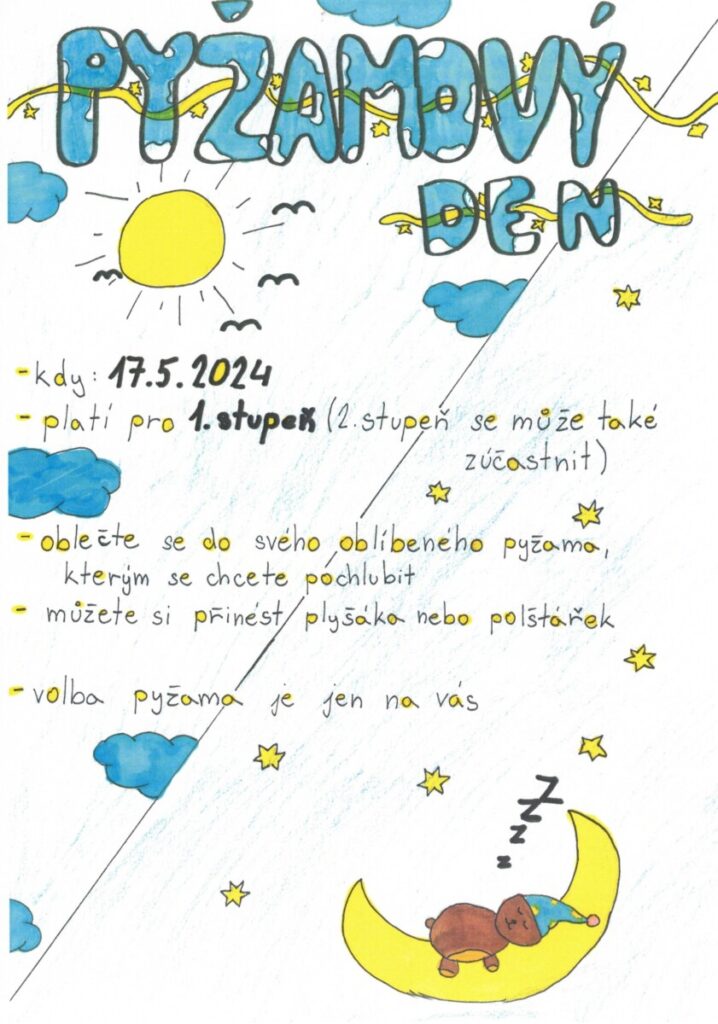 PYŽAMOVÝ
DEN
- kdy: 17.5.2024
- platí pro 1. stupeň (2. stupeň se může také
zúčastnit)
- oblečte se do svého oblíbeného pyžama,
kterým se chcete pochlubit
- můžete si přinést plyšáka nebo polštářek
- volba pyžama je jen na vás
z z Z Z